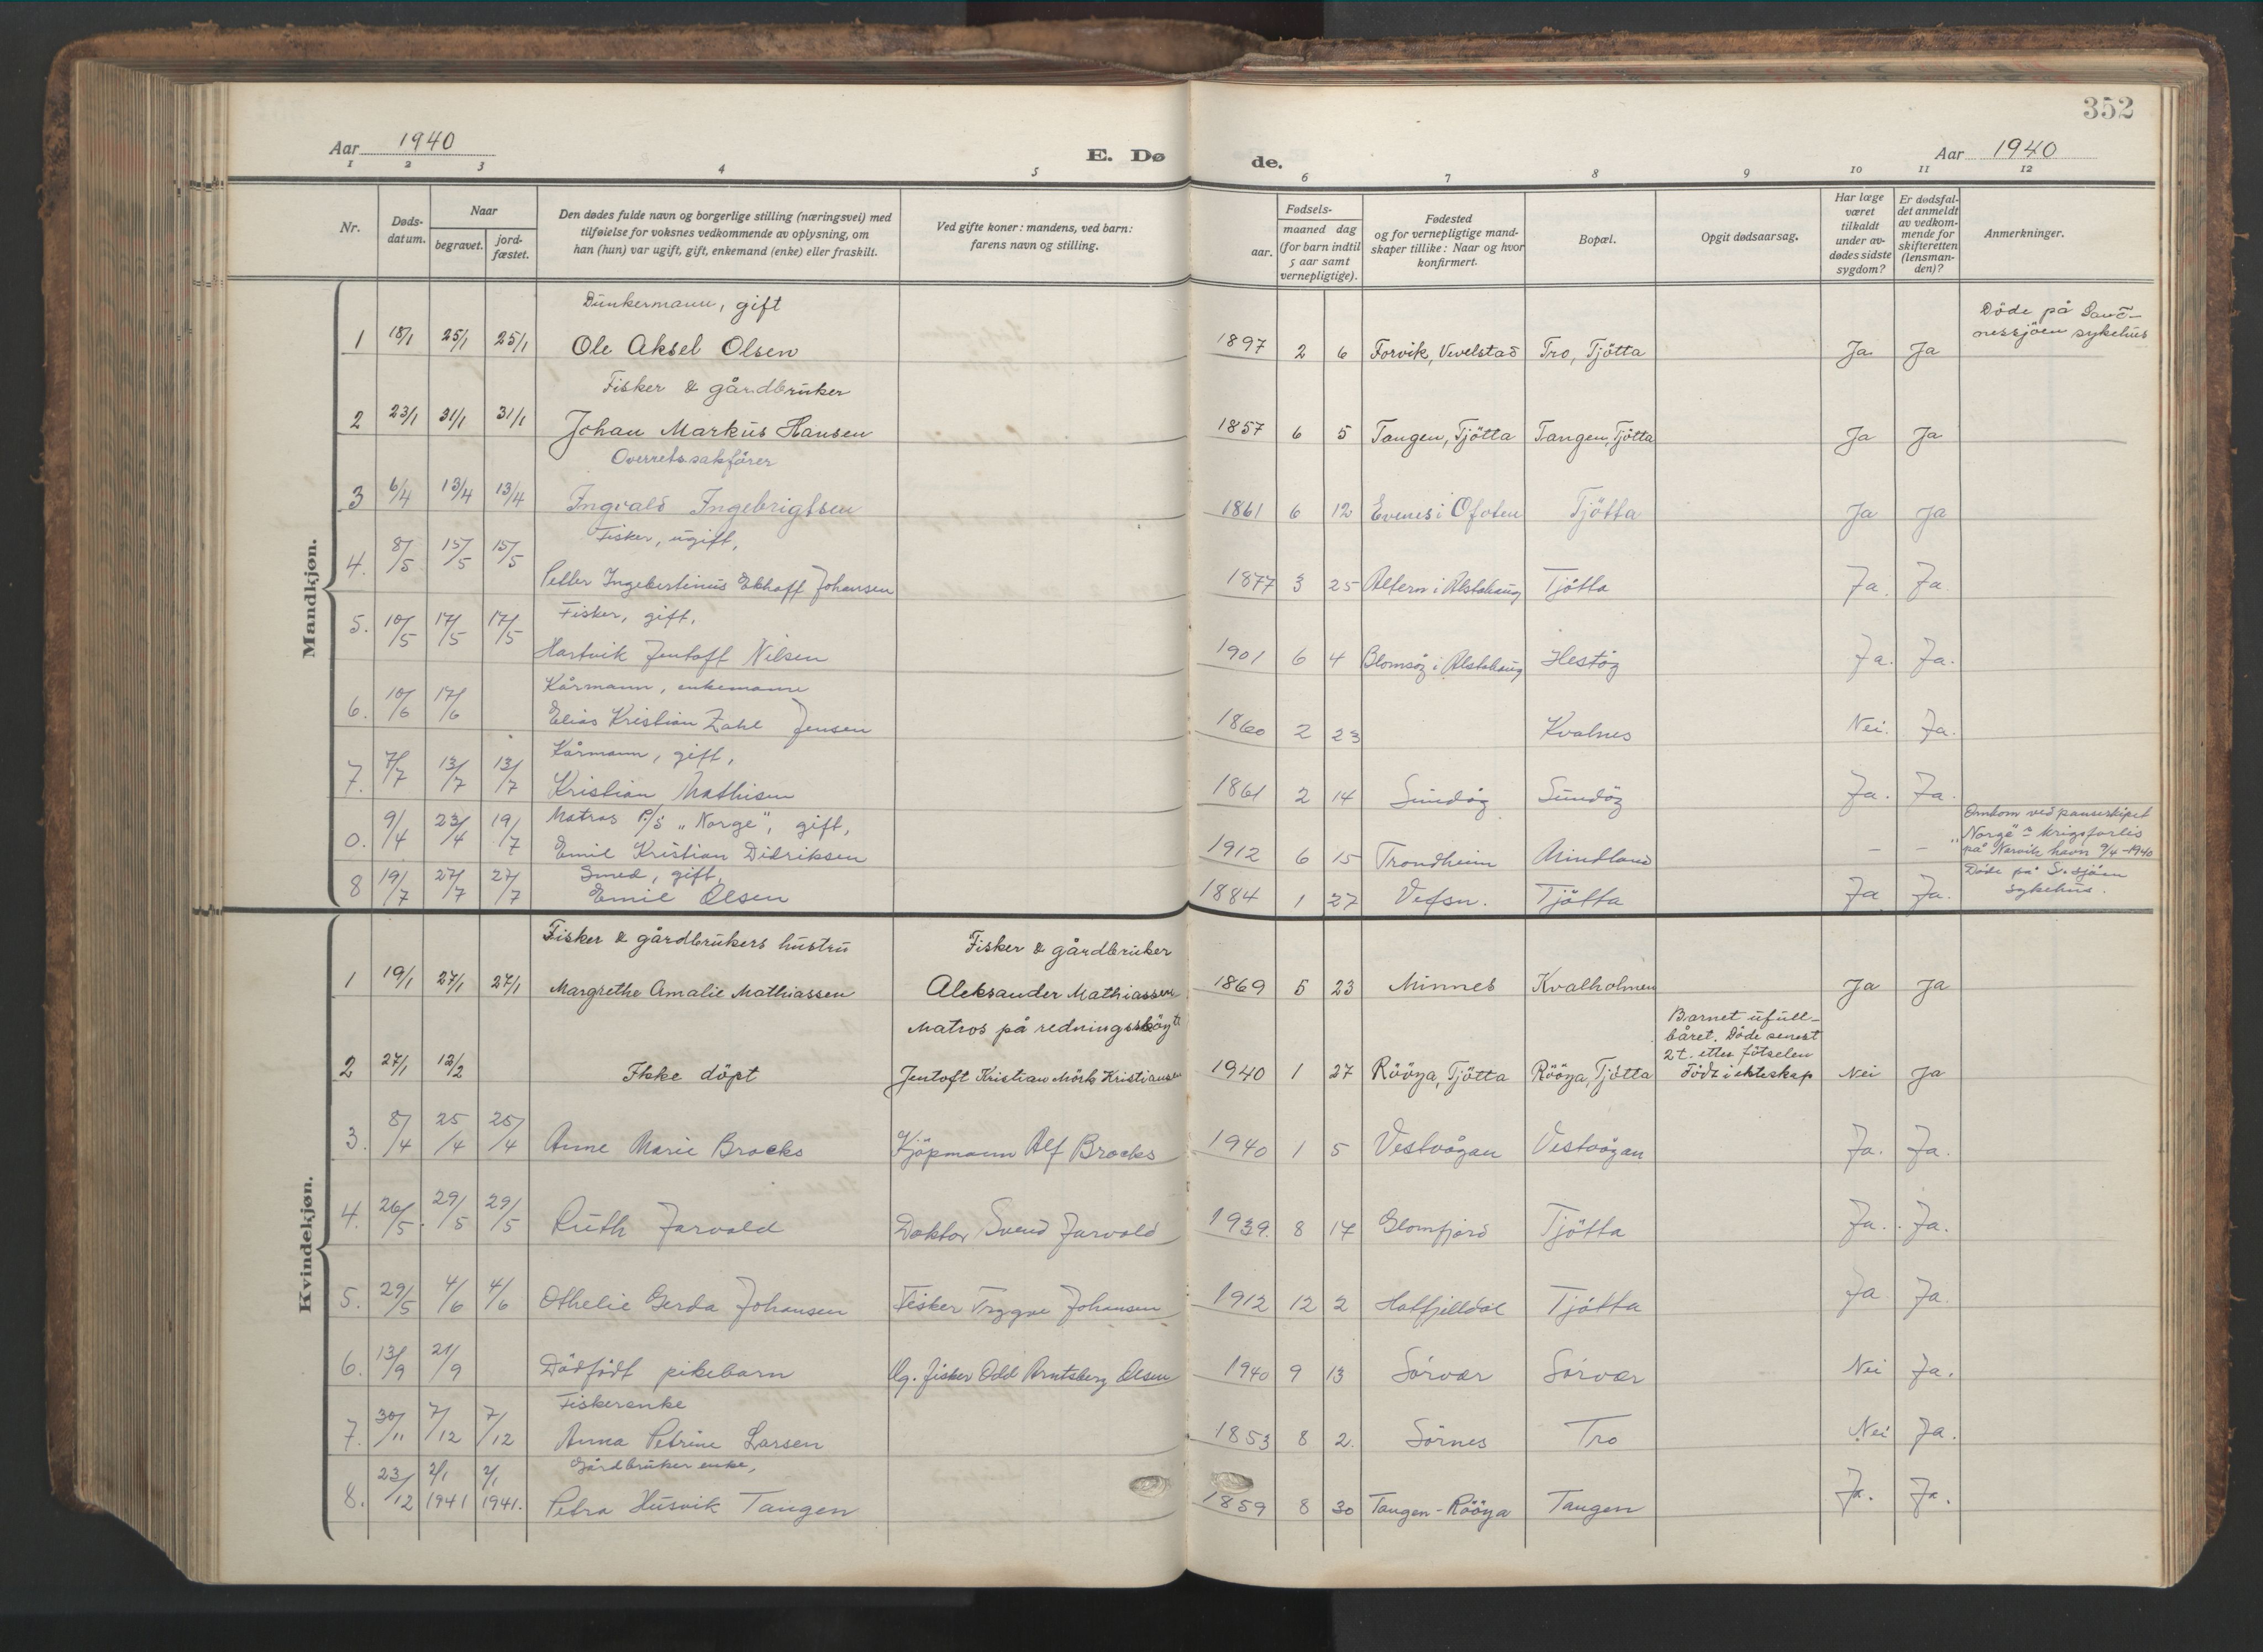 352
Aar 1940
E. Dø
de.
Aar 1940
1 2 3 4 5 6 7 8 9 10 11 12
Nr.
Døds-
datum.
Naar
begravet.
jord-
fæstet.
Den dødes fulde navn og borgerlige stilling (næringsvei) med
tilføielse for voksnes vedkommende av oplysning, om
han (hun) var ugift, gift, enkemand (enke) eller fraskilt.
Ved gifte koner: mandens, ved barn:
farens navn og stilling.
Fødsels-
aar.
maaned dag
(for barn indtil
5 aar samt
vernepligtige).
Fødested
og for vernepligtige mand-
skaper tillike: Naar og hvor
konfirmert.
Bopæl.
Opgit dødsaarsag.
Har læge
været
tilkaldt
under av-
dødes sidste
sygdom?
Er dødsfal-
det anmeldt
av vedkom-
mende for
skifteretten
(lensman-
den)?
Anmerkninger.
Mandkjøn.
Dunkermann, gift
Döde på Sand-
nessjöen sykehus
1 18/1 25/1 25/1 Ole Aksel Olsen 1897 2 6 Forvik, Vevelstad Tro, Tjötta Ja Ja
Fisker & gårdbruker
2 23/1 31/1 31/1 Johan Markus Hansen 1857 6 5 Tangen, Tjötta Tangen, Tjötta Ja Ja
Overretssakförer
3 6/4 13/4 13/4 Ingvald Ingebrigtsen 1861 6 12 Evenes i Ofoten Tjötta Ja Ja
Fisker, ugift,
4. 8/5 15/5 15/5 Petter Ingebertinus Ekhoff Johansen 1877 3 25 Altern i Alstahaug Tjötta Ja. Ja.
Fisker, gift,
5. 10/5 17/5 17/5 Hartvik Jentoft Nilsen 1901 6 4 Blomsöy i Alstahaug Hestöy Ja. Ja.
Kårmann, enkemann
6. 10/6 17/6 Elias Kristian Zahl Jensen 1860 2 23 Kvalnes Nei. Ja.
Kårmann, gift,
7. 7/7 13/7 13/7 Kristian Mathisen 1861 2 14 Sundöy Sundöy Ja. Ja.
Matros P/S "Norge", gift,
Omkom ved panserskipet
"Norge" krigsforlis
på Narvik havn 9/4-1940
0. 9/4 23/4 19/7 Emil Kristian Didriksen 1912 6 15 Trondheim Mindland – –
Smed, gift,
Döde på S.sjöen
sykehus.
8 19/7 27/7 27/7 Emil Olsen 1884 1 27 Vefsn. Tjötta Ja Ja.
Kvindekjøn.
Fisker & gårdbrukers hustru Fisker & gårdbruker
1 19/1 27/1 27/1 Margrethe Amalie Mathiassen Aleksander Mathiassen 1869 5 23 Minnes Kvalholmen Ja Ja
Matros på redningssköyte
Barnet ufull-
båret. Döde senest
2 t. etter fötselen
Född i ekteskap
2 27/1 12/2 Ikke döpt Jentoft Kristian Mörk Kristiansen 1940 1 27 Rööya, Tjötta Rööya, Tjötta Nei Ja
3. 8/4 25/4 25/4 Anne Marie Brocks Kjöpmann Alf Brocks 1940 1 5 Vestvågan Vestvågan Ja. Ja.
4. 26/5. 29/5 29/5 Ruth Jarvold Doktor Svend Jarvold 1939. 8 17 Glomfjord Tjötta Ja. Ja.
5. 29/5 4/6 4/6 Othelie Gerda Johansen Fisker Trygve Johansen 1912 12 2 Hatfjelldal Tjötta Ja Ja.
6. 13/9 21/9 Dödfödt pikebarn Ug. fisker Odd Arntsberg Olsen 1940 9 13 Sörvær Sörvær Nei Ja.
Fiskerenke
7. 30/11 7/12 7/12 Anna Petrine Larsen 1853 8 2. Sörnes Tro Nei Ja.
Gårdbrukerenke,
8. 23/12 2/1 1941 2/1 1941. Petra Husvik Tangen 1859 8 30 Tangen-Rööya Tangen Ja. Ja.